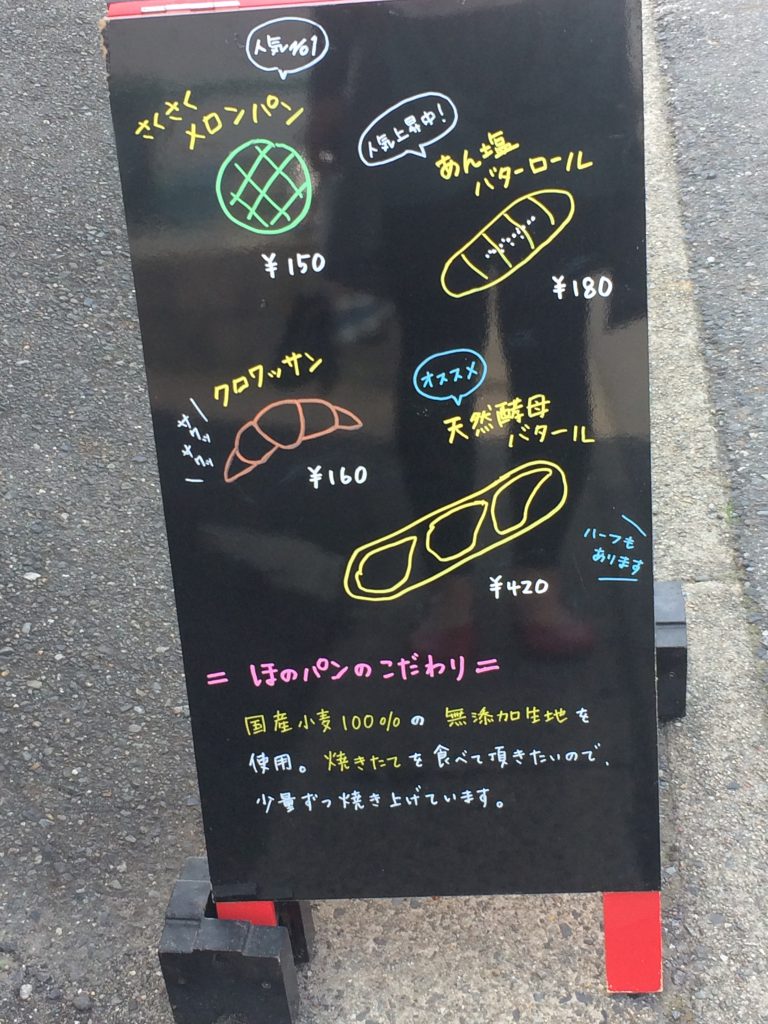 人気No1
さくさく
メロンパン
¥150
人気上昇中!
あん塩
バターロール
¥180
クロワッサン
サクッ
サクッ
¥160
オススメ
天然酵母
バタール
¥420
ハーフも
あります
= ほのパンのこだわり =
国産小麦100%の 無添加生地を
使用。焼きたてを食べて頂きたいので、
少量ずつ焼き上げています。